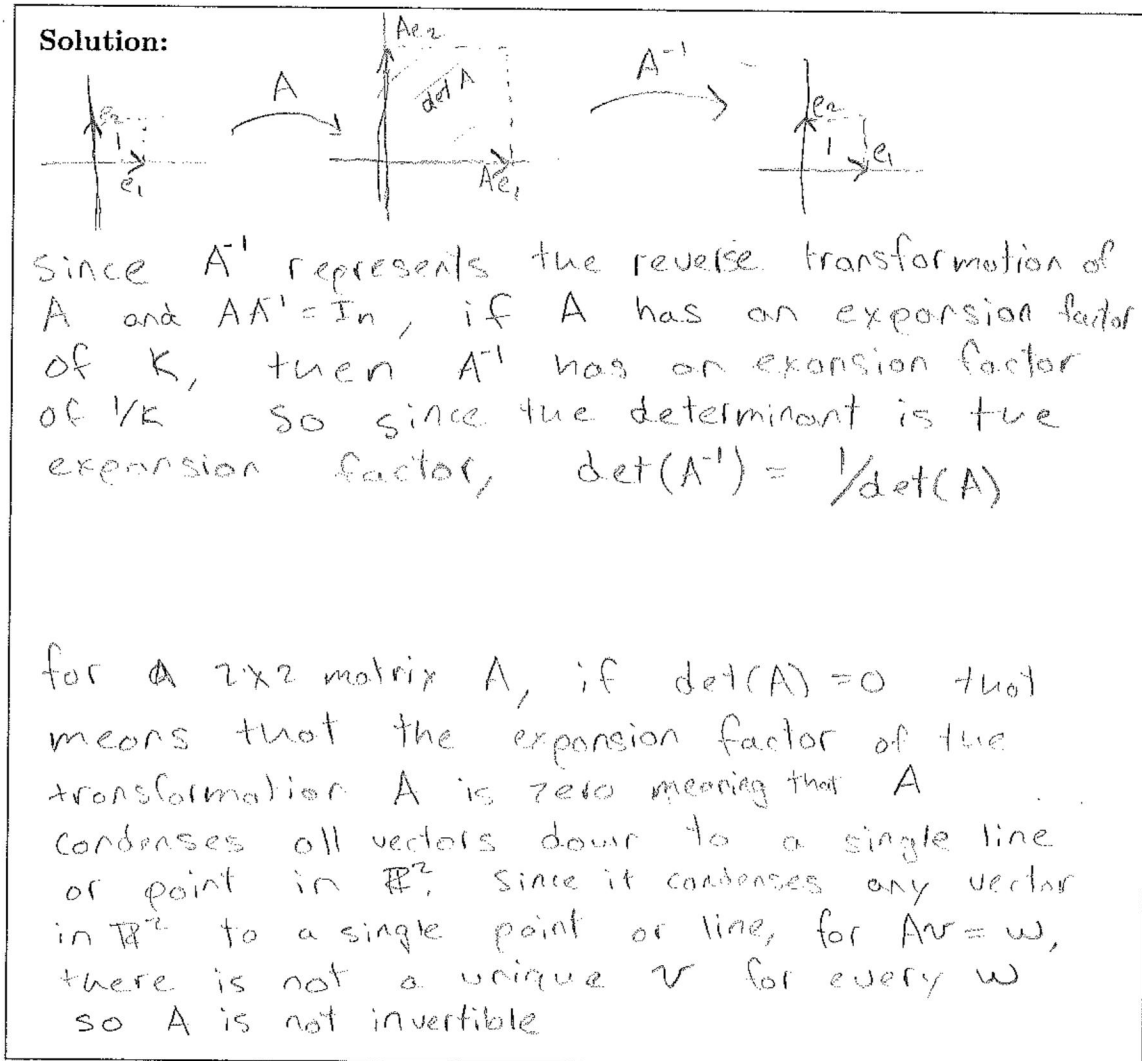 Solution:
e2 1 e1
A
Ae2 det A Ae1
A⁻¹
e2 1 e1
since A⁻¹ represents the reverse transformation of
A and AA⁻¹ = In, if A has an expansion factor
of K, then A⁻¹ has an exansion factor
of 1/K so since the determinant is the
expansion factor, det(A⁻¹) = 1/det(A)
for a 2x2 matrix A, if det(A) = 0 that
means that the expansion factor of the
transformation A is zero meaning that A
condenses all vectors down to a single line
or point in ℝ². Since it condenses any vector
in ℝ² to a single point or line, for Av = w,
there is not a unique v for every w
so A is not invertible